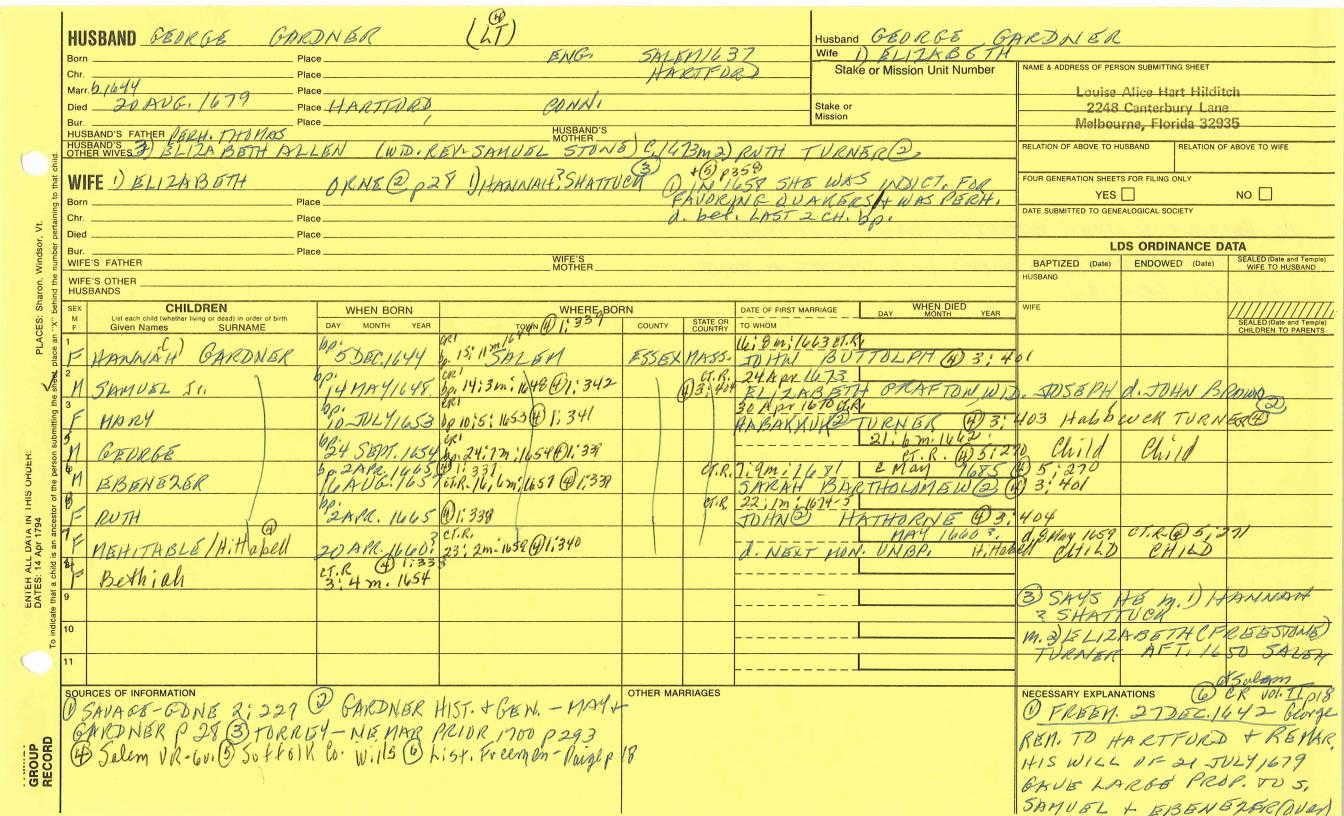 HUSBAND GEORGE GARDNER (LT) ④
Husband GEORGE GARDNER
Wife 1) ELIZABETH
Born Place ENG. SALEM 1637
Chr. Place HARTFORD
Marr. b, 1644 Place
Died 20 AUG. 1679 Place HARTFORD, CONN.
Bur. Place
HUSBAND'S FATHER PERH. THOMAS HUSBAND'S MOTHER
HUSBAND'S OTHER WIVES 3) ELIZABETH ALLEN (WD. REV. SAMUEL STONE) C. 1673 m 2) RUTH TURNER ②
Stake or Mission Unit Number
Stake or Mission
NAME & ADDRESS OF PERSON SUBMITTING SHEET
Louise Alice Hart Hilditch
2248 Canterbury Lane
Melbourne, Florida 32935
RELATION OF ABOVE TO HUSBAND RELATION OF ABOVE TO WIFE
FOUR GENERATION SHEETS FOR FILING ONLY
YES NO
DATE SUBMITTED TO GENEALOGICAL SOCIETY
WIFE 1) ELIZABETH ORNE ② p28 1) HANNAH? SHATTUCK ③ + ⑤ p358
① IN 1658 SHE WAS INDICT. FOR
FAVORING QUAKERS & WAS PERH.
d. bef. LAST 2 CH. bp.
Born Place
Chr. Place
Died Place
Bur. Place
WIFE'S FATHER WIFE'S MOTHER
WIFE'S OTHER HUSBANDS
LDS ORDINANCE DATA
BAPTIZED (Date) ENDOWED (Date) SEALED (Date and Temple) WIFE TO HUSBAND
HUSBAND
WIFE
SEALED (Date and Temple) CHILDREN TO PARENTS
SEX M F
CHILDREN
List each child (whether living or dead) in order of birth
Given Names SURNAME
WHEN BORN
DAY MONTH YEAR
WHERE BORN
TOWN ④ 1:337 COUNTY STATE OR COUNTRY
DATE OF FIRST MARRIAGE
TO WHOM
WHEN DIED
DAY MONTH YEAR
1 F HANNAH GARDNER bp. 5 DEC. 1644 CR1 SALEM ESSEX MASS. 16:8m:1663 CT.R. JOHN BUTTOLPH ④ 3:401
2 M SAMUEL Jr. bp. 14 MAY 1648 CR1 bp. 14:3m:1648 ④ 1:342 CT.R. ④ 3:404 24 Apr 1673 ELIZABETH GRAFTON WID. JOSEPH d. JOHN BROWN ②
3 F MARY bp. 10 JULY 1653 CR1 bp 10:5:1653 ④ 1:341 30 Apr 1670 CT.R. HABAKKUK ② TURNER ④ 3:403 TURNER ④
5 M GEORGE bp. 24 SEPT. 1654 CR1 bp. 24:7m:1654 ④ 1:339 21:6m.1662: CT.R. ④ 5:270 Child Child
6 M EBENEZER bp. 2 APR. 1665 ④ 1:337 16 AUG. 1657 CT.R. 16:6m:1657 ④ 1:339 CT.R. 7:9m:1681 2 May 1685 ④ 5:270 SARAH BARTHOLMEW ② ④ 3:401
8 F RUTH bp. 2 APR. 1665 ④ 1:338 CT.R 22:1m:1674-5 JOHN ② HATHORNE ④ 3:404
7 F MEHITABLE/Hittabell ④ 20 APR. 1660? CT.R. 23:2m:1659 ④ 1:340 MAY 1660?. d. NEXT MON. UNBP. d. 9 May 1659 CT.R. ④ 5:271 CHILD CHILD
4 F Bethiah CT.R ④ 3:4m.1654
9
10
11
③ SAYS HE m. 1) HANNAH
? SHATTUCK
m. 2) ELIZABETH (FREESTONE)
TURNER AFT. 1650 SALEM
SOURCES OF INFORMATION
① SAVAGE-GDNE 2:227 ② GARDNER HIST. & GEN. - MAY &
GARDNER P 28 ③ TORREY - NE MAR PRIOR 1700 P 293
④ Salem VR-6v. ⑤ Suffolk Co. Wills ⑥ List. Freemen - Paige p 18
OTHER MARRIAGES
NECESSARY EXPLANATIONS
of Salem
⑥ CR Vol. II p18
① FREEM. 27 DEC. 1642 George
REM. TO HARTFORD & REMAR.
HIS WILL OF 21 JULY 1679
GAVE LARGE PROP. TO S.
SAMUEL & EBENEZER (over)
ENTER ALL DATA IN THIS ORDER:
DATES: 14 Apr 1794 PLACES: Sharon, Windsor, Vt.
To indicate that a child is an ancestor of the person submitting the sheet, place an "X" behind the number pertaining to that child.
GROUP
RECORD